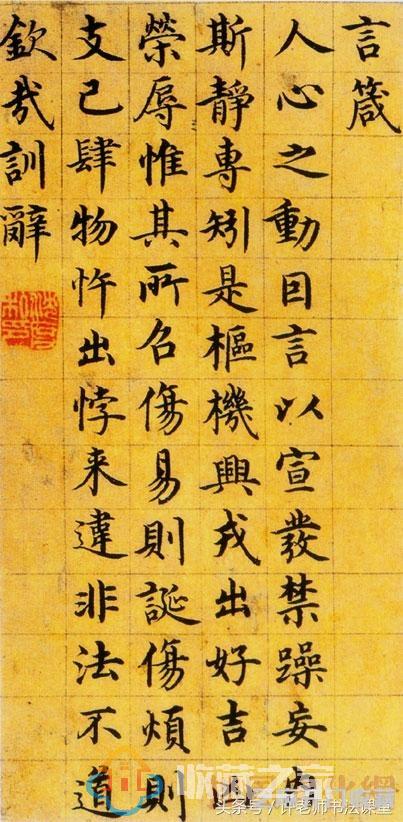 言箴
人心之動因言以宣發禁躁妄內
斯靜專矧是樞機興戎出好吉凶
榮辱惟其所召傷易則誕傷煩則
支己肆物忤出悖来違非法不道
欽哉訓辭
头条号 / 许老师书法课堂